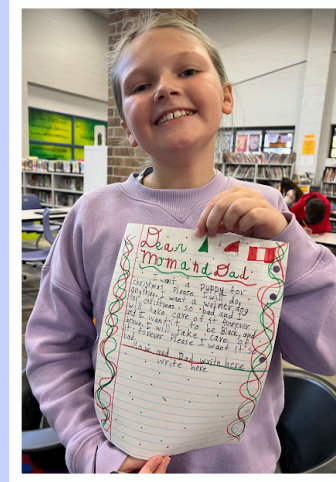 Dear
Mom and Dad
I want a puppy for
Christmas Please I will do
anything. I want a weiner dog
for christmas so bad and I
will take care of it forever
and I want it to be Black and
brown. I will take care of
it forever Please I want it so
bad.
Mom and Dad write here
write here